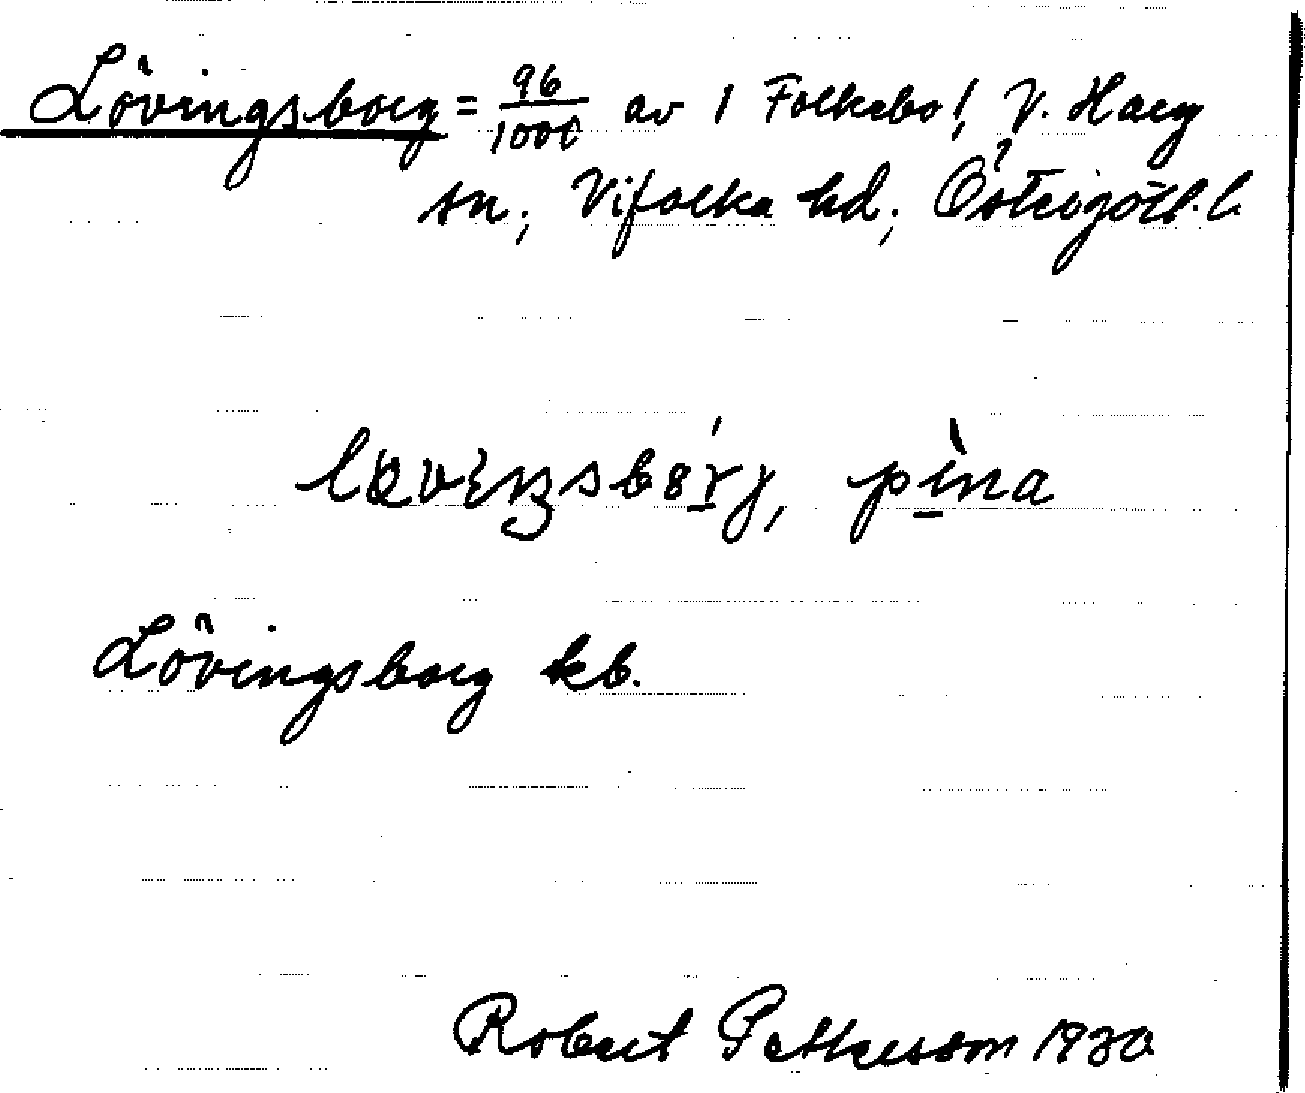 Lövingsborg = 96/1000 av 1 Folkebo!, V. Harg
sn, Vifolka hd, Östergötl. l.
pina
Lövingsborg kb.
Robert Pettersson 1930